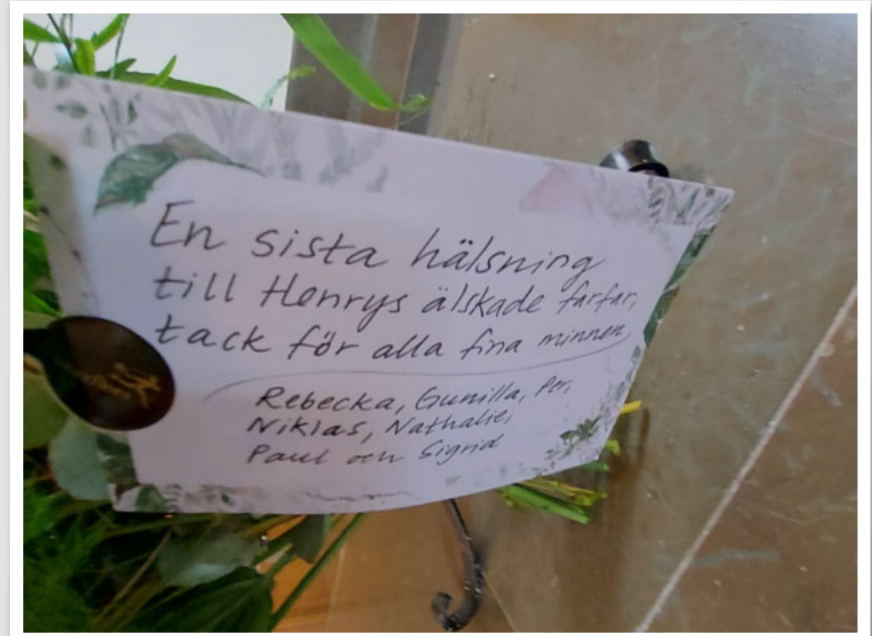 En sista hälsning
till Henrys älskade farfar,
tack för alla fina minnen
Rebecka, Gunilla, Per,
Niklas, Nathalie,
Paul och Sigrid